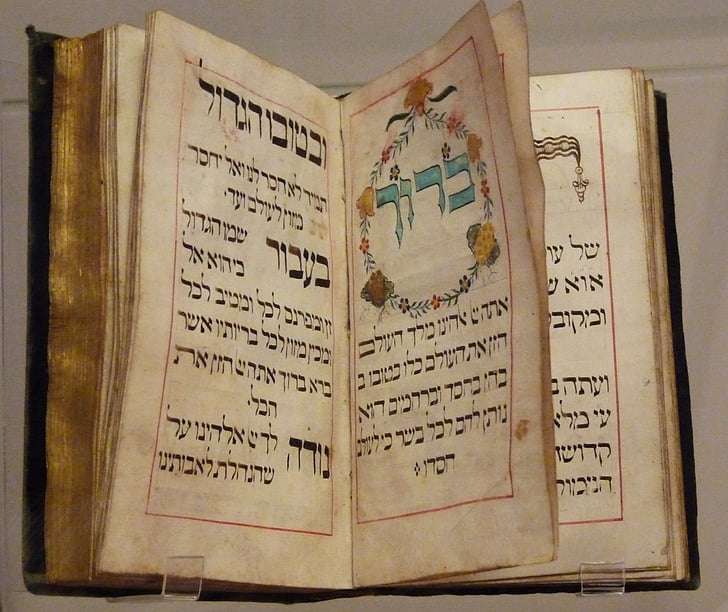 של
ועתה
ברוך
אתה יי אלהינו מלך העולם
הזן את העולם כלו בטובו ב
בחן בחסד וברחמים הוא
נותן לחם לכל בשר כי לעולם
חסדו :
ובטובו הגדול
תמיד לא חסר לנו ואל יחסר
מזון לעולם ועד:
בעבור שמו הגדול
כי הוא אל
זן ומפרנס לכל ומטיב לכל
ומכין מזון לכל בריותיו אשר
ברא ברוך אתה יי הזן את
הכל:
נודה לך יי אלהינו על
שהנחלת לאבותינו